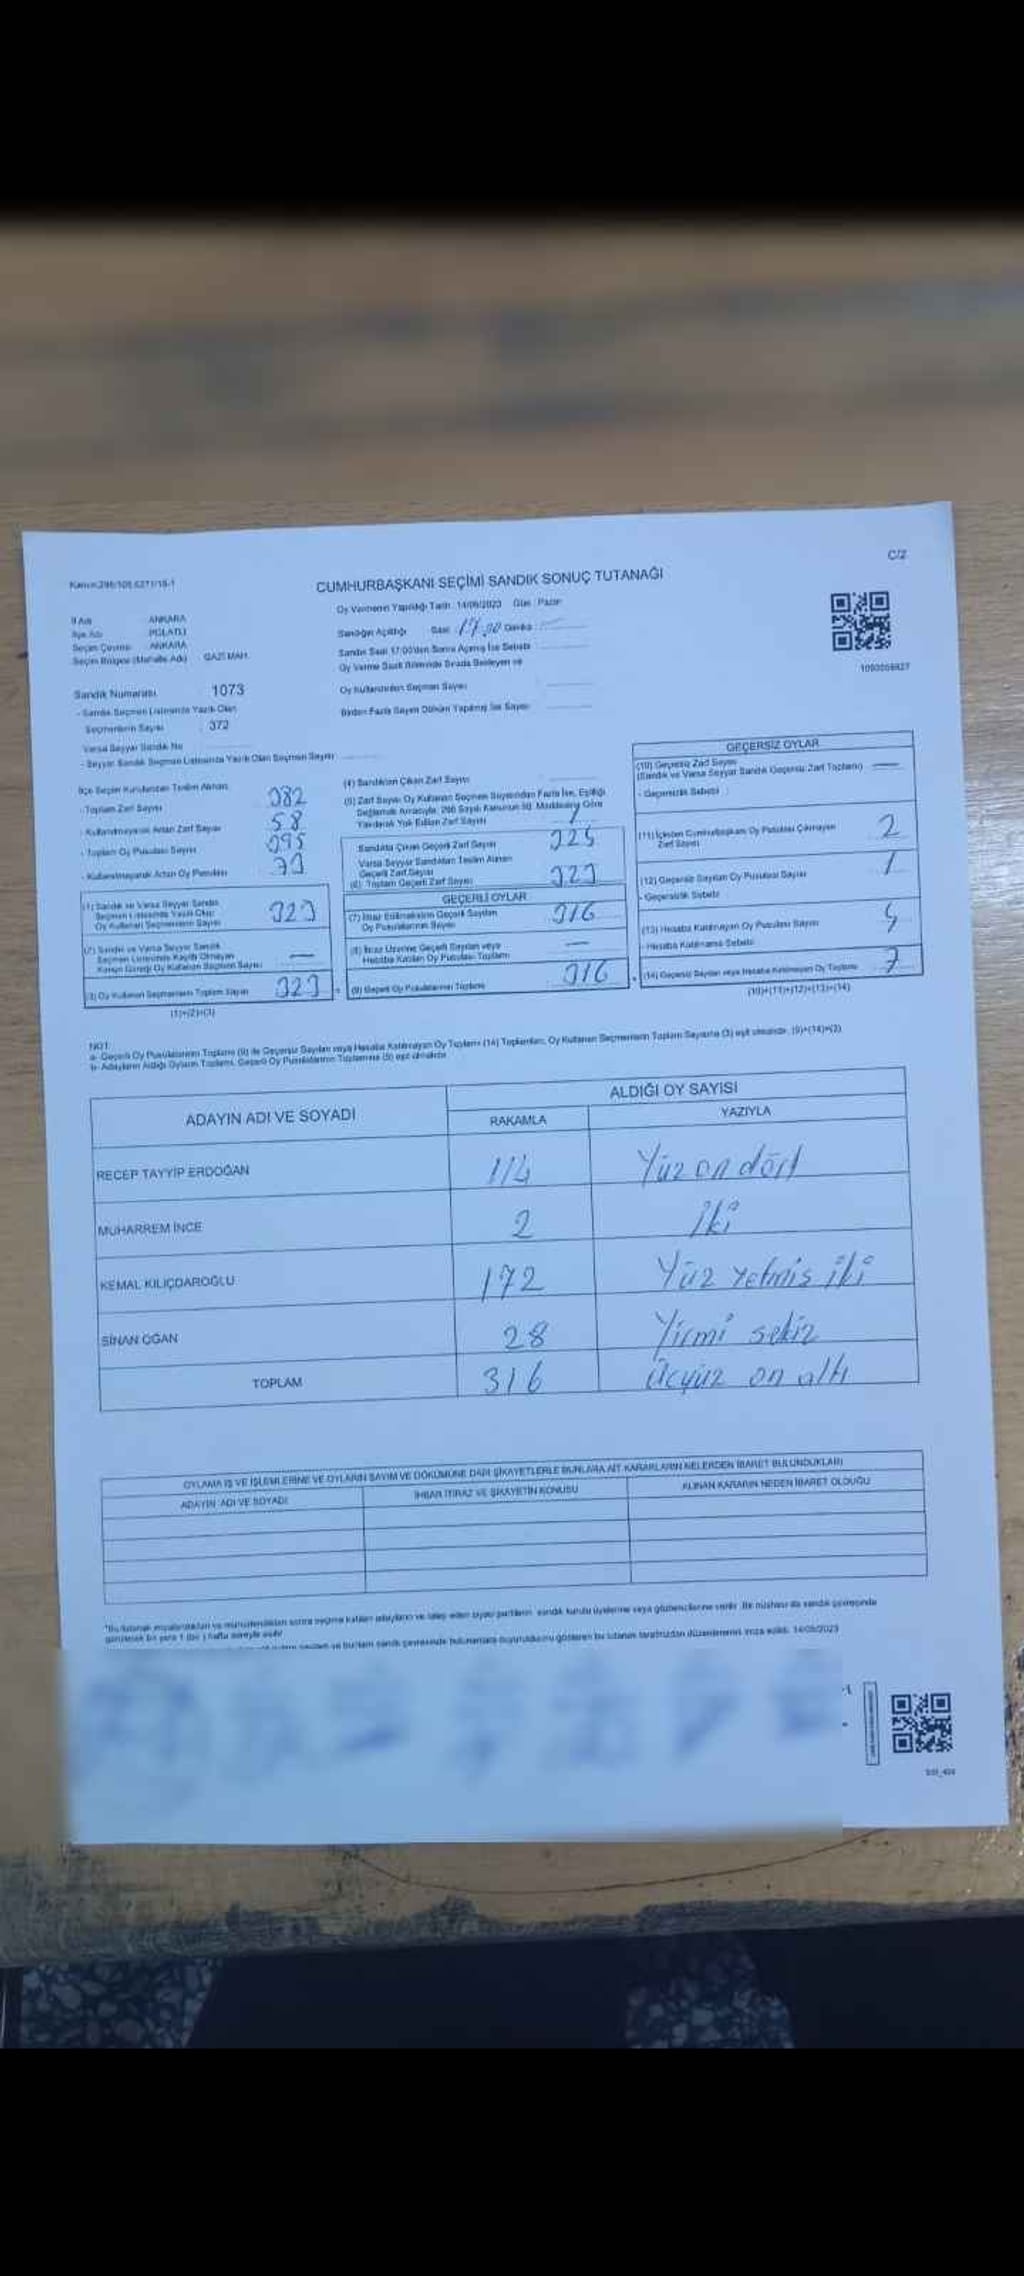 C/2
CUMHURBAŞKANI SEÇİMİ SANDIK SONUÇ TUTANAĞI
Oy Vermenin Yapıldığı Tarih 14/05/2023 Gün Pazar
İl Adı ANKARA
İlçe Adı POLATLI
Seçim Çevresi ANKARA
Seçim Bölgesi (Mahalle Adı) GAZİ MAH.
Sandığın Açıldığı Saat 17.00 Dakika
Sandık Saat 17:00'den Sonra Açılmış İse Sebebi
Oy Verme Saati Bitiminde Sırada Bekleyen ve
Oy Kullandırılan Seçmen Sayısı
Birden Fazla Sayım Döküm Yapılmış İse Sayısı
Sandık Numarası 1073
- Sandık Seçmen Listesinde Yazılı Olan
Seçmenlerin Sayısı 372
Varsa Seyyar Sandık No
- Seyyar Sandık Seçmen Listesinde Yazılı Olan Seçmen Sayısı
İlçe Seçim Kurulundan Teslim Alınan
- Toplam Zarf Sayısı 382
- Kullanılmayarak Artan Zarf Sayısı 58
- Toplam Oy Pusulası Sayısı 395
- Kullanılmayarak Artan Oy Pusulası 73
(1) Sandık ve Varsa Seyyar Sandık
Seçmen Listesinde Yazılı Olup
Oy Kullanan Seçmenlerin Sayısı 323
(2) Sandık ve Varsa Seyyar Sandık
Seçmen Listesinde Kayıtlı Olmayan
Kanun Gereği Oy Kullanan Seçmen Sayısı —
(3) Oy Kullanan Seçmenlerin Toplam Sayısı 323
(1)+(2)=(3)
(4) Sandıktan Çıkan Zarf Sayısı
(5) Zarf Sayısı Oy Kullanan Seçmen Sayısından Fazla İse, Eşitliği
Sağlamak Amacıyla, 298 Sayılı Kanunun 98. Maddesine Göre
Yakılarak Yok Edilen Zarf Sayısı
Sandıkta Çıkan Geçerli Zarf Sayısı 325
Varsa Seyyar Sandıktan Teslim Alınan
Geçerli Zarf Sayısı
(6) Toplam Geçerli Zarf Sayısı 323
GEÇERLİ OYLAR
(7) İtiraz Edilmeksizin Geçerli Sayılan
Oy Pusulalarının Sayısı 316
(8) İtiraz Üzerine Geçerli Sayılan veya
Hesaba Katılan Oy Pusulası Toplamı —
(9) Geçerli Oy Pusulalarının Toplamı 316
GEÇERSİZ OYLAR
(10) Geçersiz Zarf Sayısı —
(Sandık ve Varsa Seyyar Sandık Geçersiz Zarf Toplamı)
- Geçersizlik Sebebi :
(11) İçinden Cumhurbaşkanı Oy Pusulası Çıkmayan
Zarf Sayısı 2
(12) Geçersiz Sayılan Oy Pusulası Sayısı 1
- Geçersizlik Sebebi
(13) Hesaba Katılmayan Oy Pusulası Sayısı
- Hesaba Katılmama Sebebi
(14) Geçersiz Sayılan veya Hesaba Katılmayan Oy Toplamı 7
(10)+(11)+(12)+(13)=(14)
NOT:
a- Geçerli Oy Pusulalarının Toplamı (9) ile Geçersiz Sayılan veya Hesaba Katılmayan Oy Toplamı (14) Toplamları, Oy Kullanan Seçmenlerin Toplam Sayısına (3) eşit olmalıdır. (9)+(14)=(3)
b- Adayların Aldığı Oyların Toplamı, Geçerli Oy Pusulalarının Toplamına (9) eşit olmalıdır.
ADAYIN ADI VE SOYADI ALDIĞI OY SAYISI
RAKAMLA YAZIYLA
RECEP TAYYİP ERDOĞAN 114 Yüz on dört
MUHARREM İNCE 2 İki
KEMAL KILIÇDAROĞLU 172 Yüz yetmis iki
SİNAN OĞAN 28 Yirmi sekiz
TOPLAM 316 Üçyüz on altı
OYLAMA İŞ VE İŞLEMLERİNE VE OYLARIN SAYIM VE DÖKÜMÜNE DAİR ŞİKAYETLERLE BUNLARA AİT KARARLARIN NELERDEN İBARET BULUNDUKLARI
ADAYIN ADI VE SOYADI İHBAR İTİRAZ VE ŞİKAYETİN KONUSU ALINAN KARARIN NEDEN İBARET OLDUĞU